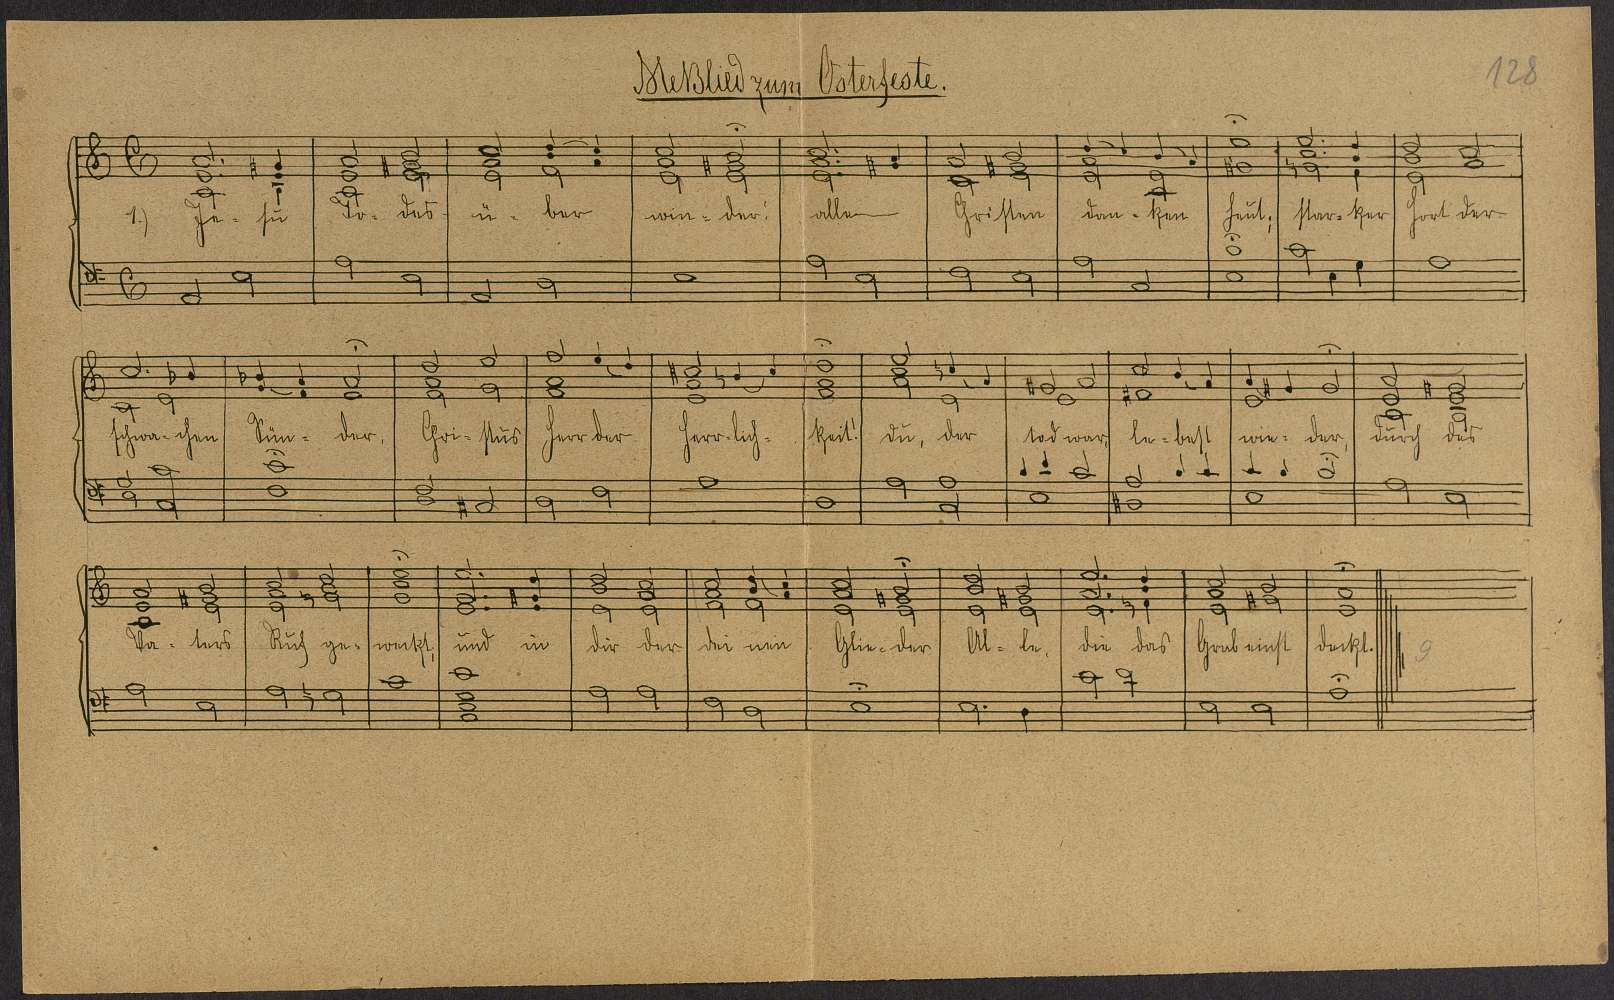 Meßlied zum Osterfeste.
128
1.) Je- su To- des- ü- ber win- der! alle Christen dan- ken heut, star- ker Hort der
schwa- chen Sün- der, Chri- stus Herr der Herr- lich- keit! du, der tod war, le- best wie- der, durch des
Va- ters Ruf ge- weckt, und in dir der dei nen Glie- der Al- le, die das Grab einst deckt.
9